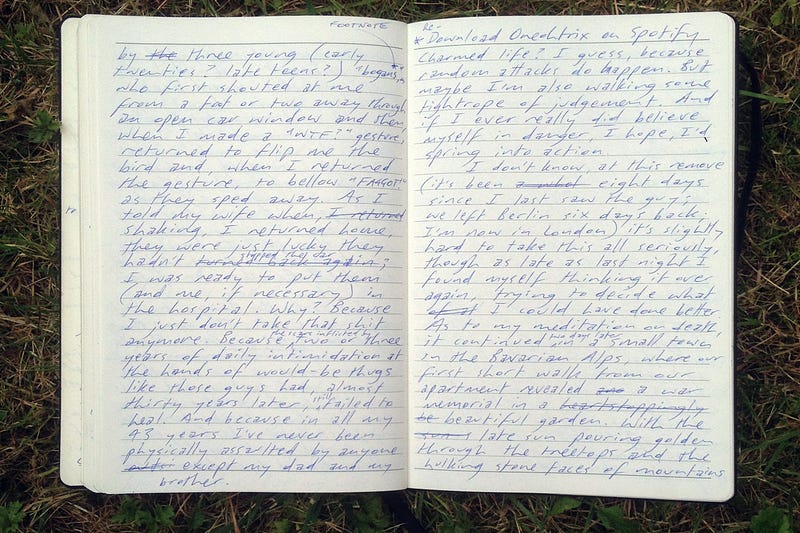 FOOTNOTE
by the three young (early
twenties? late teens?) "bogans,"**
who first shouted at me
from a foot or two away through
an open car window and then,
when I made a "WTF?" gesture,
returned to flip me the
bird and, when I returned
the gesture, to bellow "FAGGOT!"
as they sped away. As I
told my wife when, I returned
shaking, I returned home,
they were just lucky they
stopped the car
hadn't turned back again;
I was ready to put them
(and me, if necessary) in
the hospital. Why? Because
I just don't take that shit
the scars inflicted by
anymore. Because two or three
years of daily intimidation at
the hands of would-be thugs
like those guys had, almost
still
thirty years later, failed to
heal. And because in all my
43 years I've never been
physically assaulted by anyone
except my dad and my
brother.
Re-
* Download Oneohtrix on Spotify
Charmed life? I guess, because
random attacks do happen. But
maybe I'm also walking some
tightrope of judgement. And
if I ever really did believe
myself in danger, I hope, I'd
spring into action.
I don't know, at this remove
(it's been eight days
since I last saw the guy;
we left Berlin six days back;
I'm now in London) it's slightly
hard to take this all seriously,
though as late as last night I
found myself thinking it over
again, trying to decide what
I could have done better.
As to my meditation on death,
two days later
it continued in a small town
in the Bavarian Alps, where our
first short walk from our
apartment revealed a war
memorial in a heartstoppingly
beautiful garden. With the
late sun pouring golden
through the treetops and the
hulking stone faces of mountains